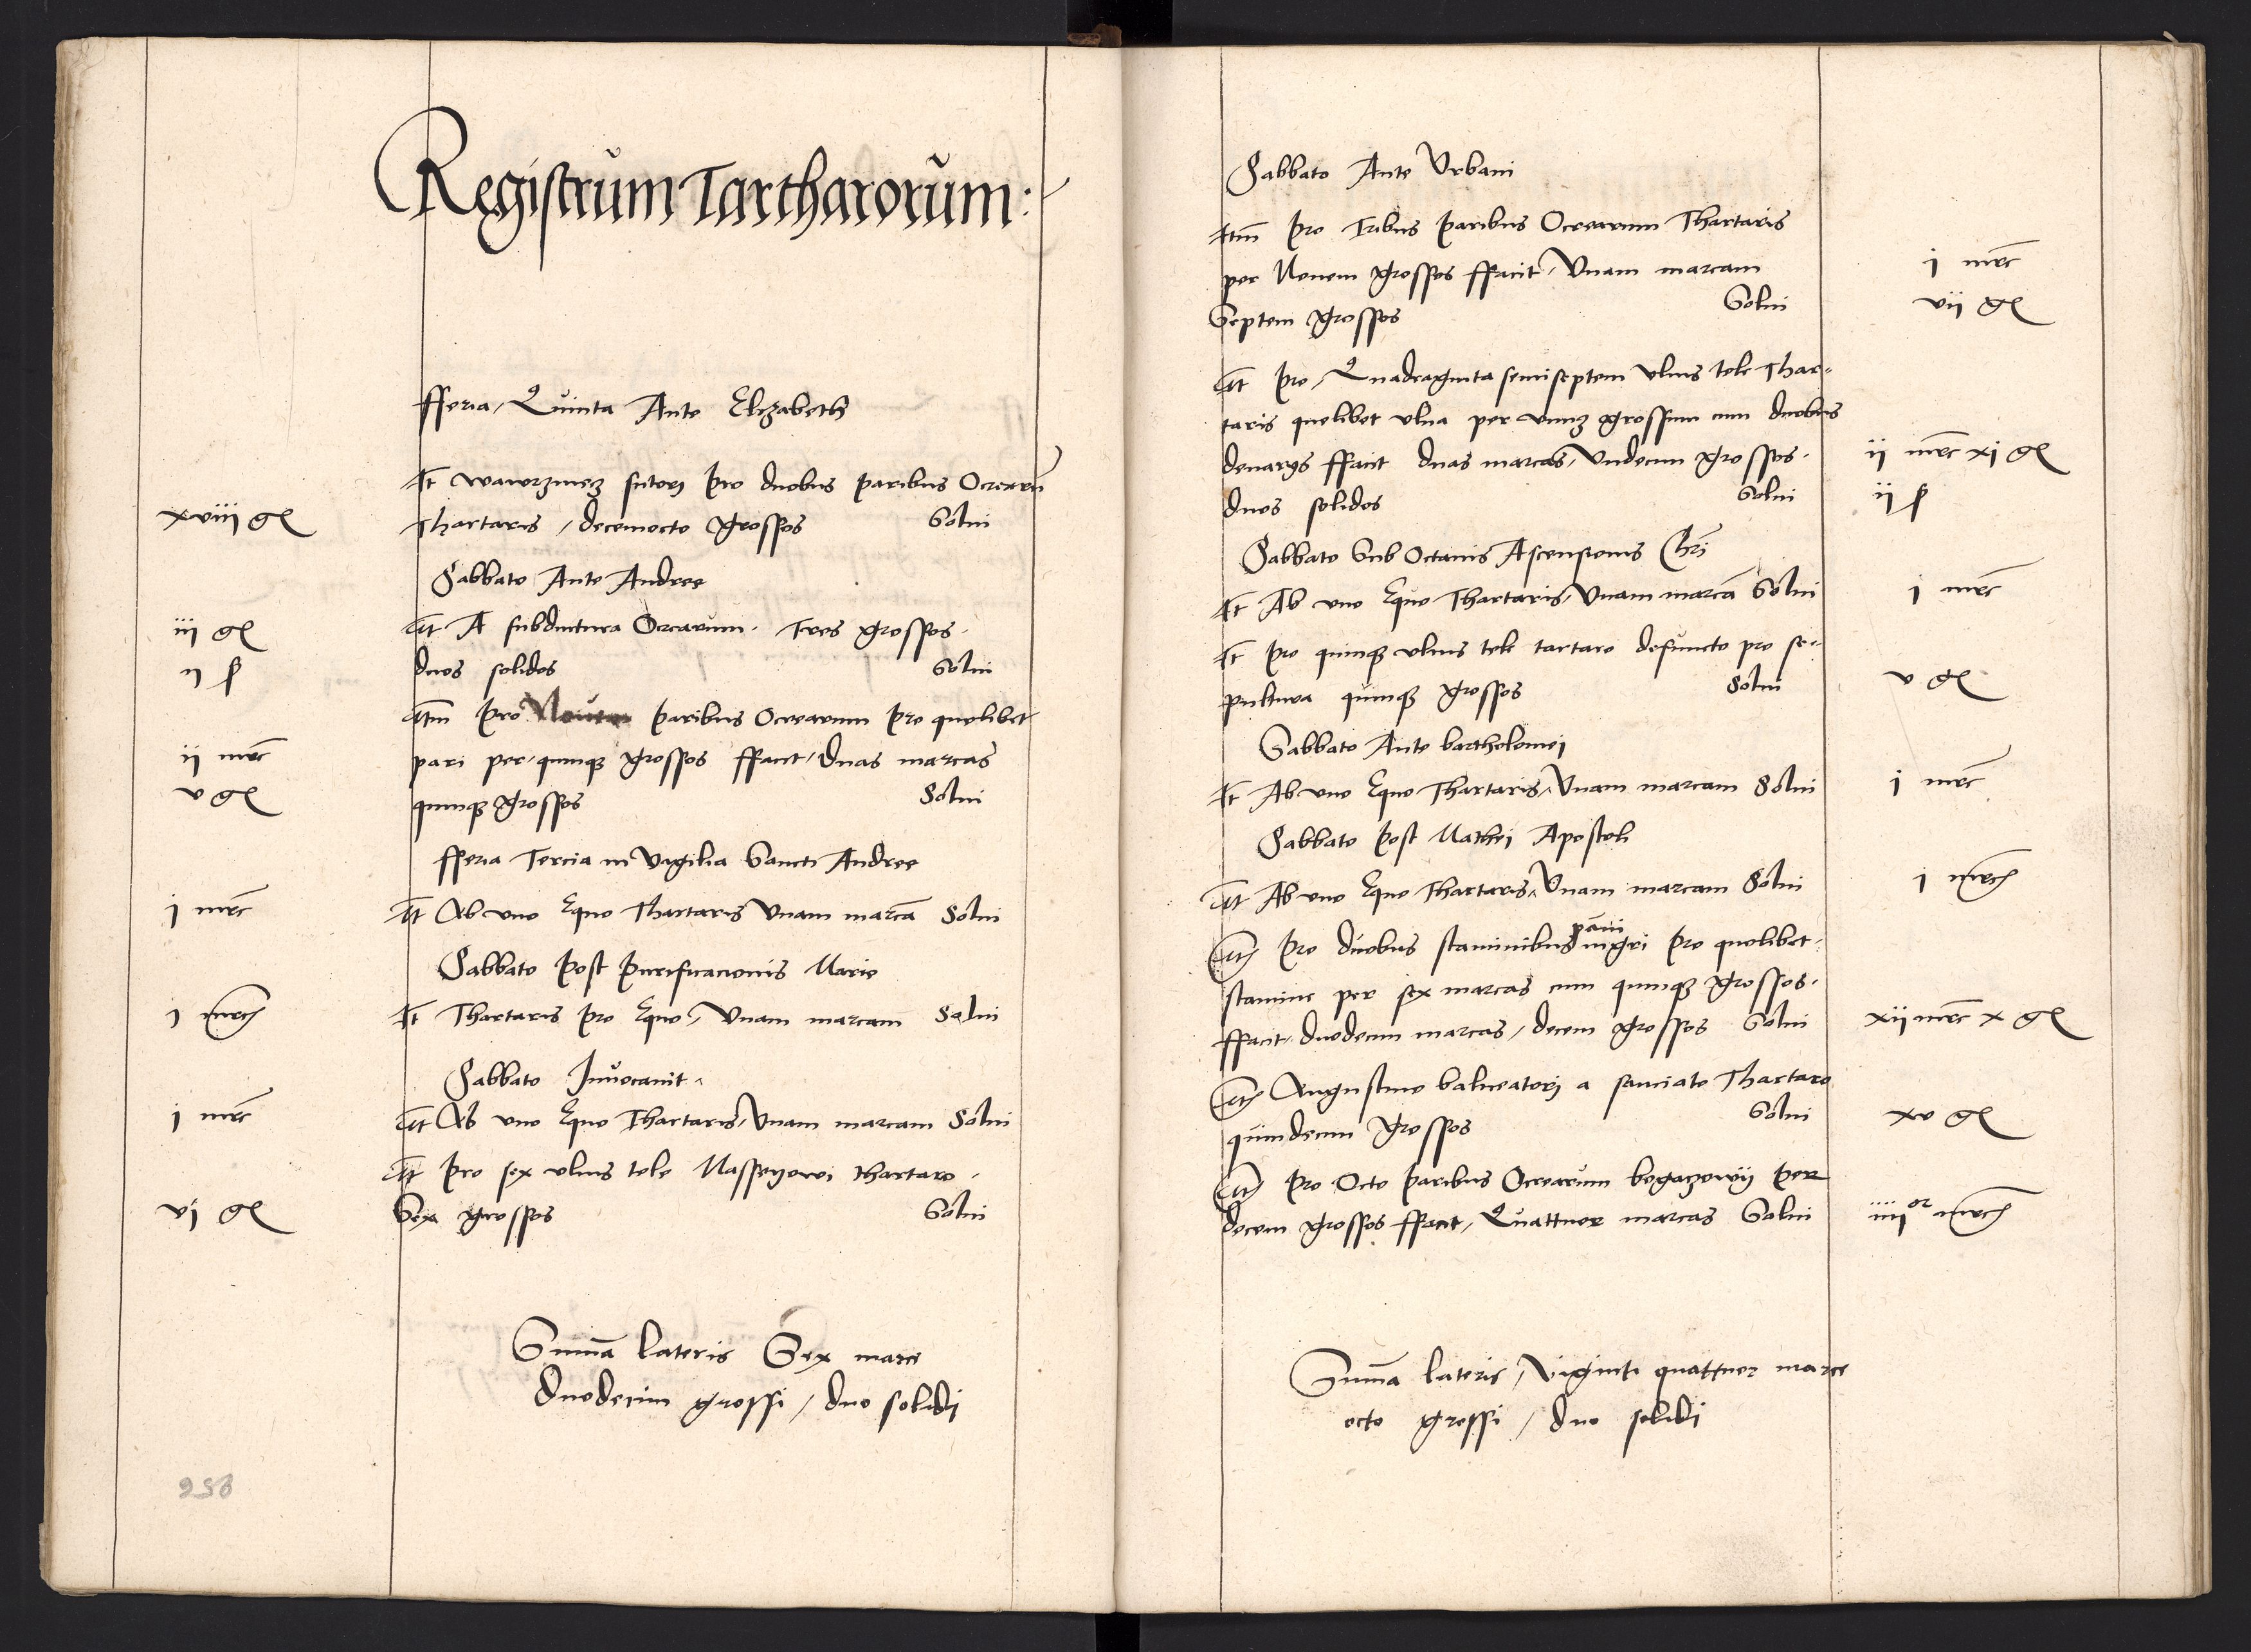 Registrum Tartharorum:
fferia Quinta Ante Elizabeth
It wawrzinecz sutorj pro duobus paribus Ocrearu
xviij gſ Thartaris / decemocto grossos Solui
Sabbato Ante Andree
iij gſ It A subductura Ocrearum. Tres grossos.
ij ſ duos solidos Solui
ij mrc Itm pro Nouem paribus Ocrearum pro quolibet
pari per quinqȝ grossos ffacit / Duas marcas
v gſ quinqȝ grossos Solui
fferia Tercia in vigilia Sancti Andree
j mrc It Ab vno Equo Thartaris Vnam marca Solui
Sabbato post purificacionis Marie
j mrc It Thartaris pro Equo / Vnam marcam Solui
Sabbato Inuocauit
j mrc It Ab vno Equo Thartaris / Vnam marcam Solui
It pro sex vlnis tele thartaro.
vj gſ Sex grossos Solui
Suma lateris Sex marce
duodecim grossi / duo solidj
256
Sabbato Ante Vrbani
Itm pro Tribus paribus Ocrearum Thartaris
per Nouem grossos ffacit / Vnam marcam j mrc
Septem grossos Solui vij gſ
It pro / Quadraginta semiseptem vlnis tele Thar-
taris quelibet vlna per vnuȝ grossum cum duobus
denarys ffacit duas marcas / Vndecim grossos. ij mrc xj gſ
duos solidos Solui ij ſ
Sabbato Sub Octauis Ascensionis Chri
It Ab vno Equo Thartaris / Vnam marca Solui j mrc
It pro quinqȝ vlnis tele tartaro defuncto pro se-
pultura quinqȝ grossos Solui v gſ
Sabbato Ante bartholomej
It Ab vno Equo Thartaris / Vnam marcam Solui j mrc
Sabbato post Mathei Apostoli
It Ab vno Equo Thartaris / Vnam marcam Solui j mrc
It pro duobus staminibus panni nigri pro quolibet
stamine per sex marcas cum quinqȝ grossos.
ffacit duodecim marcas / decem grossos Solui xij mrc x gſ
It Augustino balneatorj a sauciato Thartaro
quindecim grossos Solui xv gſ
It pro Octo paribus Ocrearum per
decem grossos ffacit / Quattuor marcas Solui iiij or mrc
Suma lateris / Viginti quattuor marce
octo grossi / duo solidi